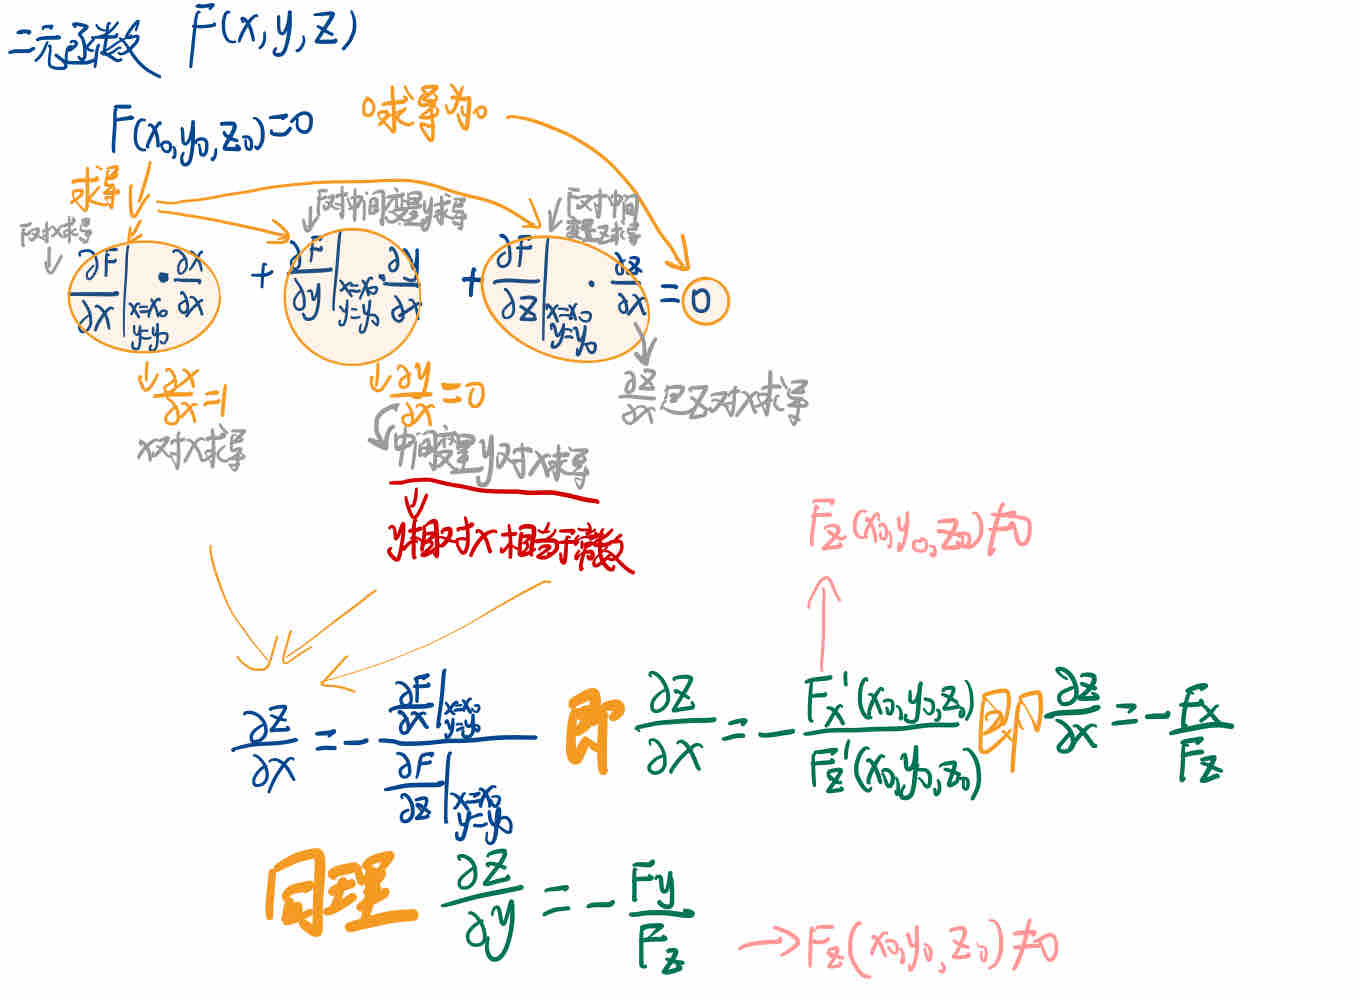 二元函数 F(x,y,z)
F(x₀,y₀,z₀)=0
0求导为0
求导
F对x求导
F对中间变量y求导
F对中间
变量z求导
∂F/∂x|x=x₀ y=y₀ · ∂x/∂x + ∂F/∂y|x=x₀ y=y₀ · ∂y/∂x + ∂F/∂z|x=x₀ y=y₀ · ∂z/∂x = 0
∂x/∂x=1
x对x求导
∂y/∂x=0
中间变量y对x求导
y相对x相当于常数
∂z/∂x是z对x求导
F_z(x₀,y₀,z₀)≠0
∂z/∂x = - (∂F/∂x|x=x₀ y=y₀)/(∂F/∂z|x=x₀ y=y₀) 即 ∂z/∂x = - F_x'(x₀,y₀,z₀)/F_z'(x₀,y₀,z₀) 即 ∂z/∂x = - F_x/F_z
同理 ∂z/∂y = - F_y/F_z
F_z(x₀,y₀,z₀)≠0